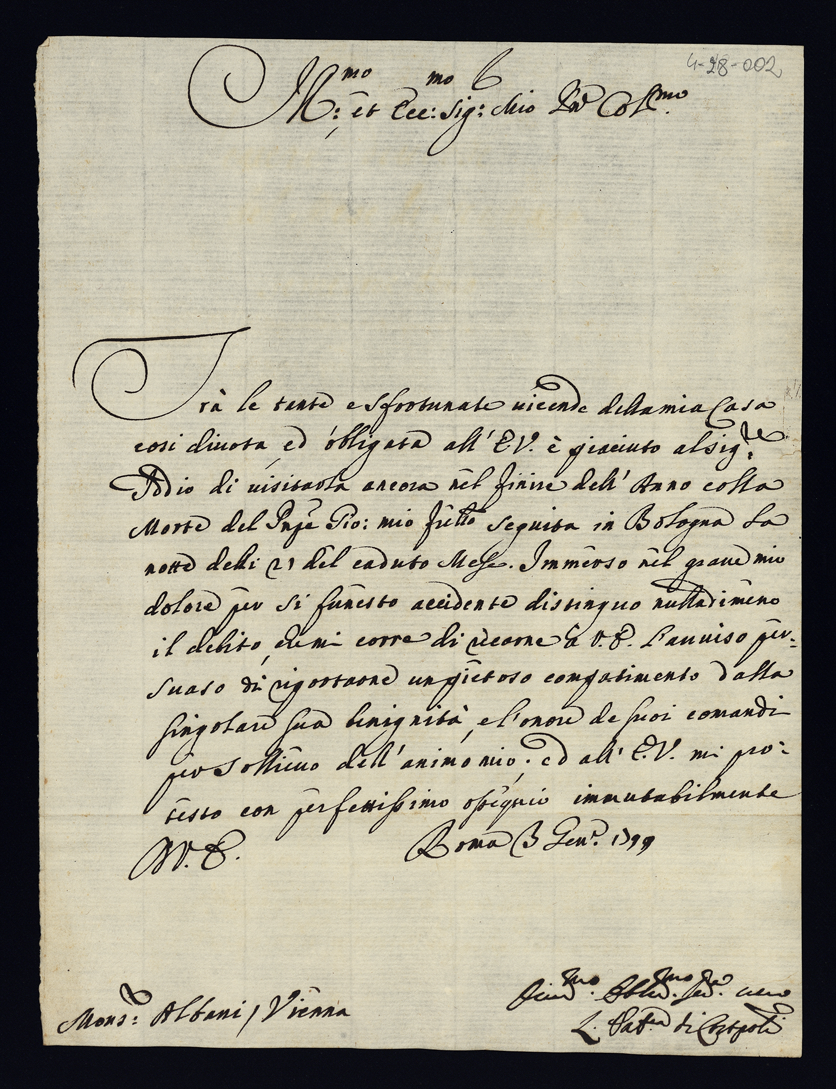 4-28-002
Ill:mo et Ecc:mo Sig:e Mio Pne Col:mo
Trà le tante e sfortunate vicende della mia Casa
cosi divota, ed obbligata all' E.V. è piaciuto al Sig:re
Iddio di visitarla ancora nel finire dell' Anno colla
Morte del Pnpe Gio: mio frello seguita in Bologna La
notte delli 21 del caduto Mese. Immerso nel grave mio
dolore per si funesto accidente distinguo nulladimeno
il debito, che mi corre di recarne à V.E. l'avviso per-
suaso di riportarne un pietoso compatimento dalla
singolare sua benignità, e l'onore de suoi comandi
per sollievo dell' animo mio; ed all' E.V. mi pro-
testo con perfettissimo ossequio immutabilmente
D V. E. Roma 3 Gen:o
Mons:e Albani / Vienna
Divmo Obblmo Serv vero
L. Pat.ca di Costpoli